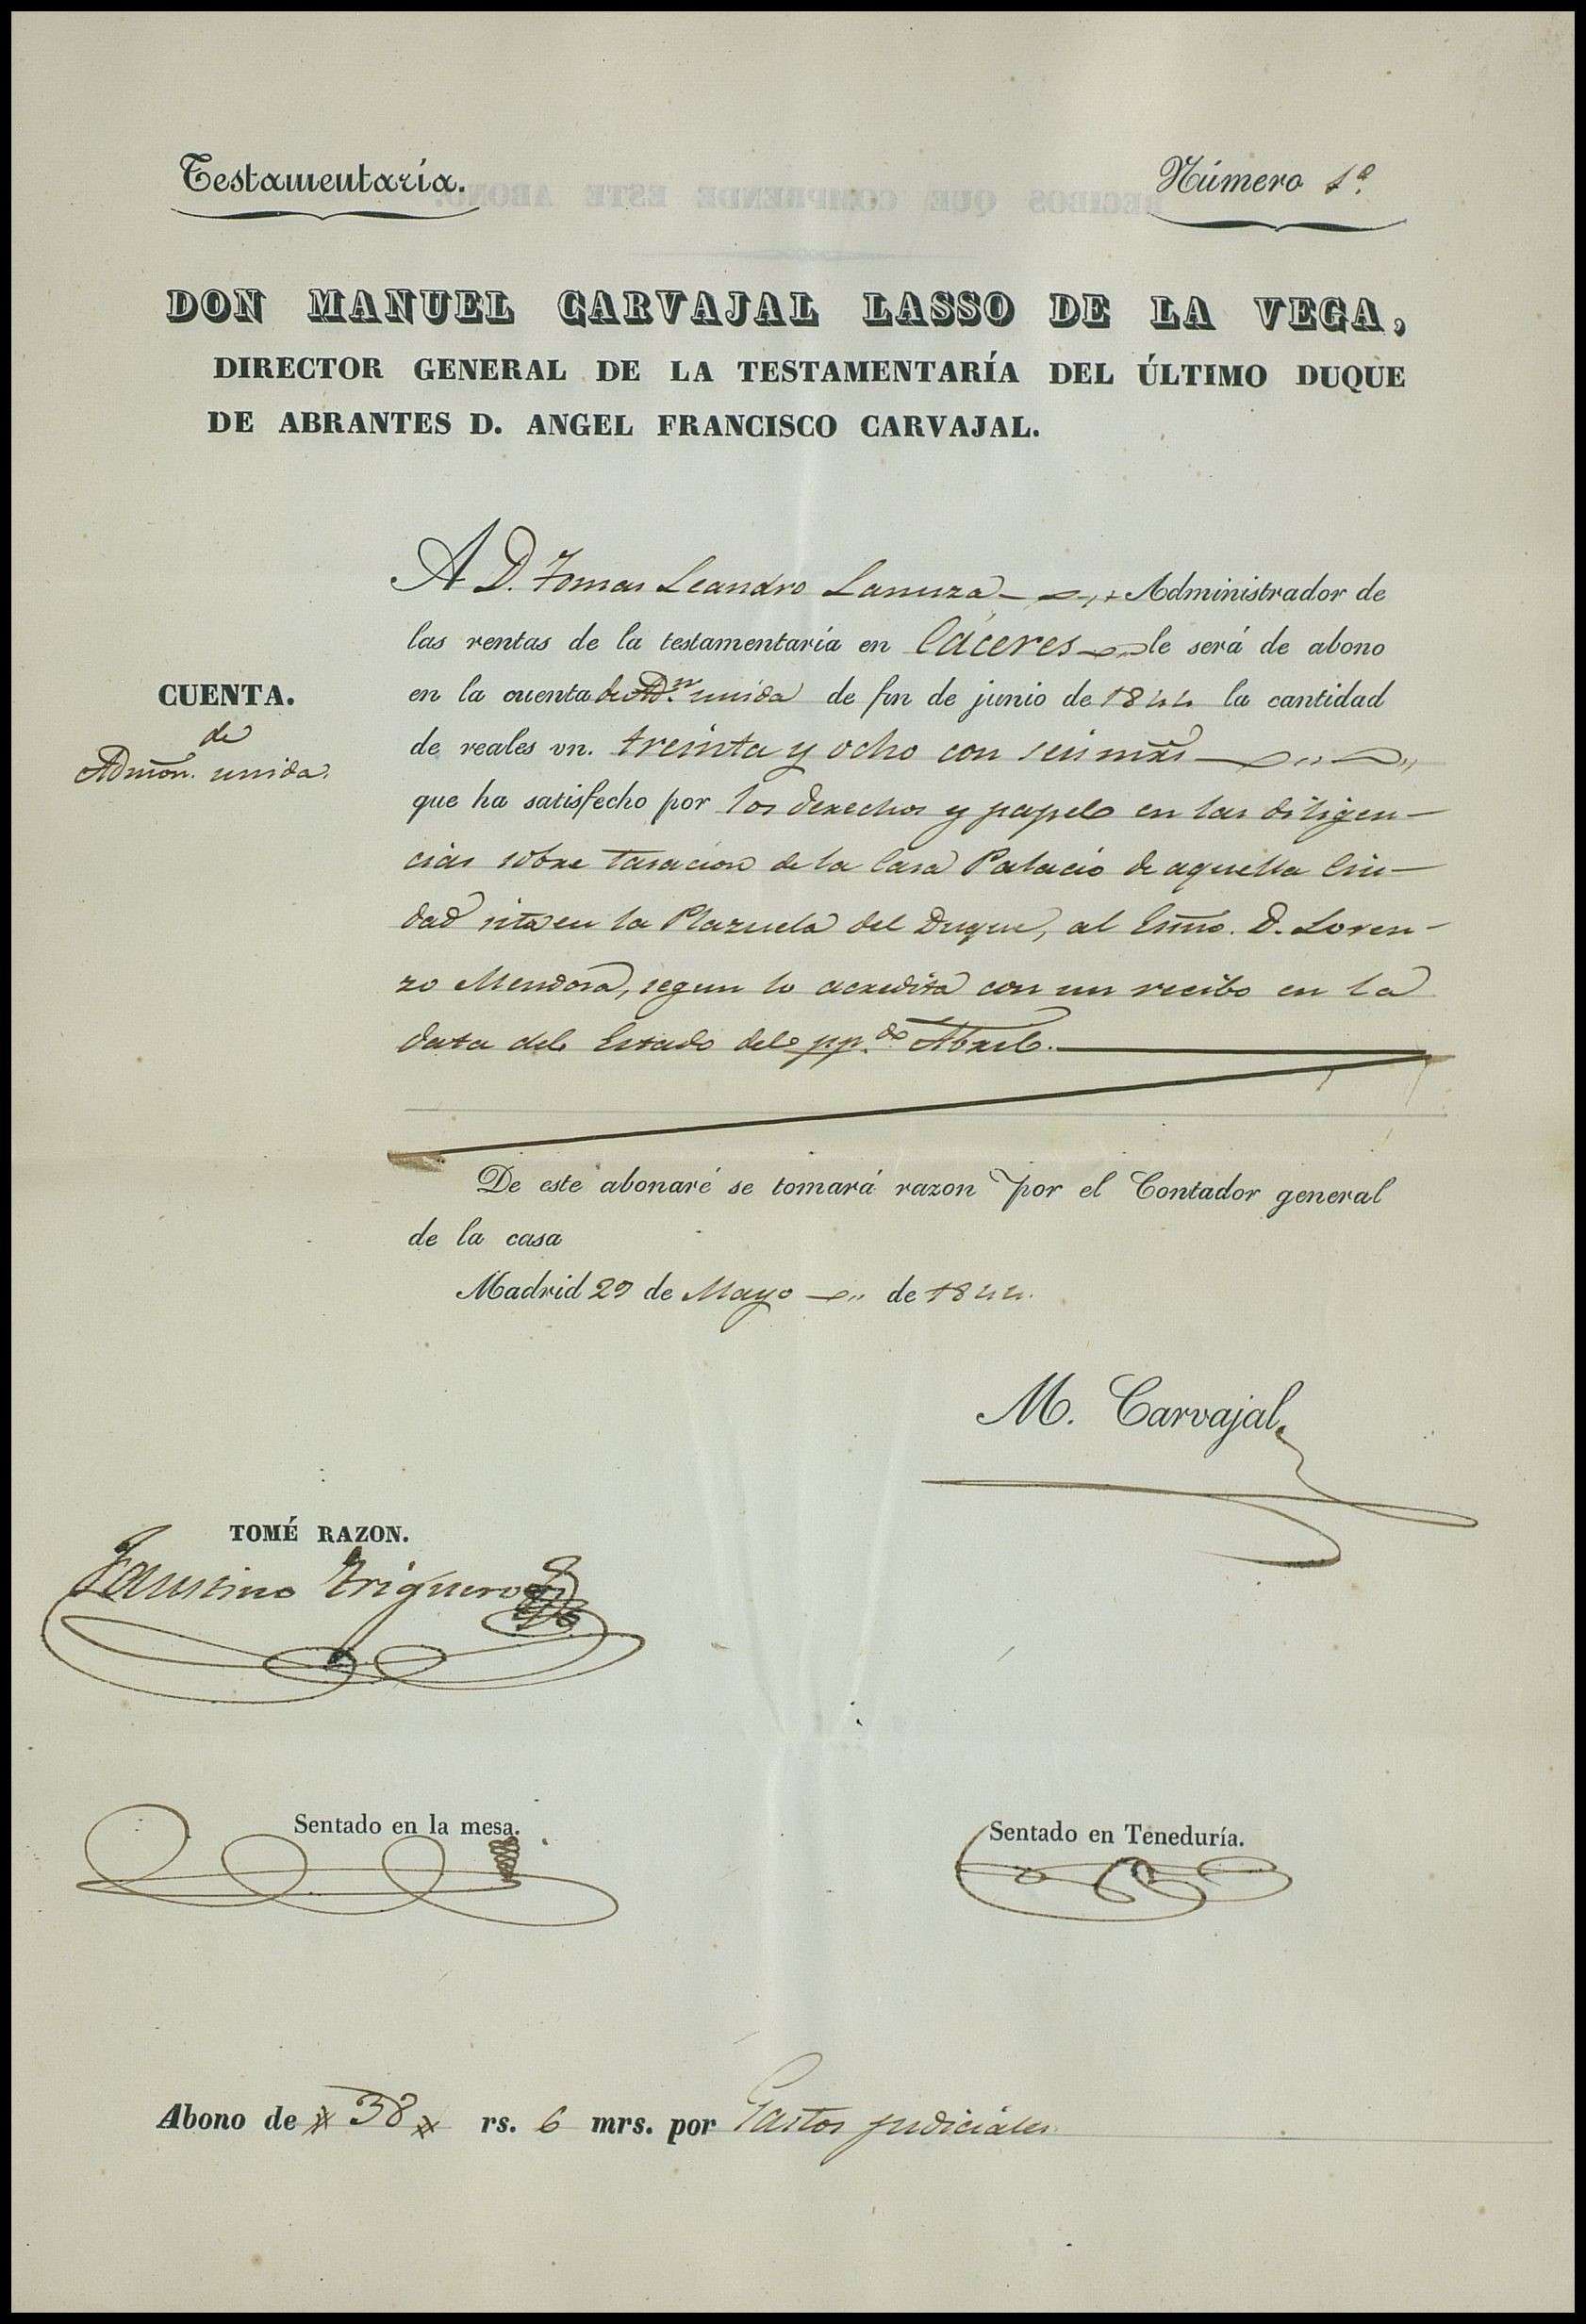 Testamentaría.
Número 1º
DON MANUEL CARVAJAL LASSO DE LA VEGA,
DIRECTOR GENERAL DE LA TESTAMENTARÍA DEL ÚLTIMO DUQUE
DE ABRANTES D. ANGEL FRANCISCO CARVAJAL.
A D. Tomas Leandro Lanuza Administrador de
las rentas de la testamentaría en Cáceres le será de abono
CUENTA.
de
Admōn. unida.
en la cuenta de Adn. unida de fin de junio de 1844 la cantidad
de reales vn. treinta y ocho con seis mrs
que ha satisfecho por los derechos y papel en las diligen-
cias sobre tasacion de la Casa Palacio de aquella Ciu-
dad sita en la Plazuela del Duque, al Esmo. D. Loren-
zo Mendoza, segun lo acredita con un recibo en la
data del Estado del pp.do Abril.
De este abonaré se tomará razon por el Contador general
de la casa
Madrid 29 de Mayo de 1844.
M. Carvajal.
TOMÉ RAZON.
Faustino Trigueros
Sentado en la mesa.
Sentado en Teneduría.
Abono de 38 rs. 6 mrs. por Gastos judiciales
RECIBOS QUE COMPRENDE ESTE ABONO.